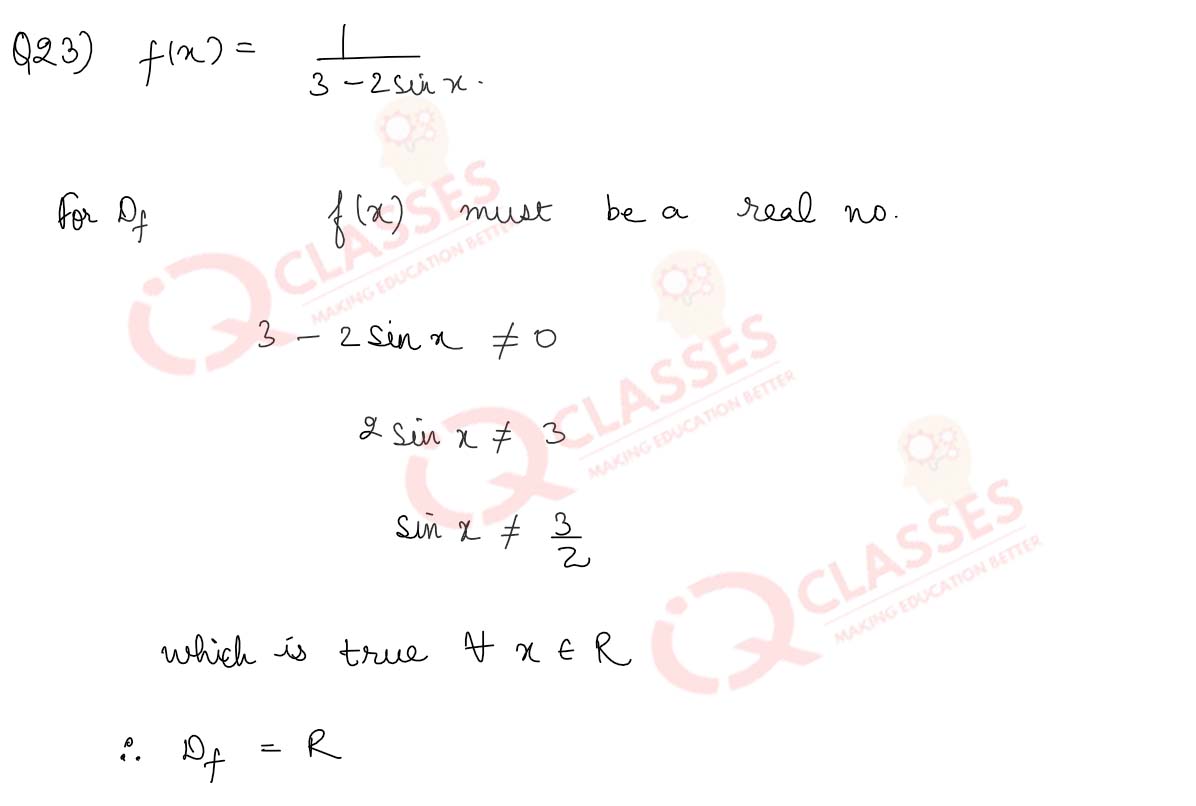 Q23) f(x) = 1 / (3 - 2 sin x .)
For Df f(x) must be a real no.
3 - 2 sin x ≠ 0
2 sin x ≠ 3
sin x ≠ 3/2
which is true ∀ x ∈ R
∴ Df = R
iQ CLASSES
MAKING EDUCATION BETTER
iQ CLASSES
MAKING EDUCATION BETTER
iQ CLASSES
MAKING EDUCATION BETTER